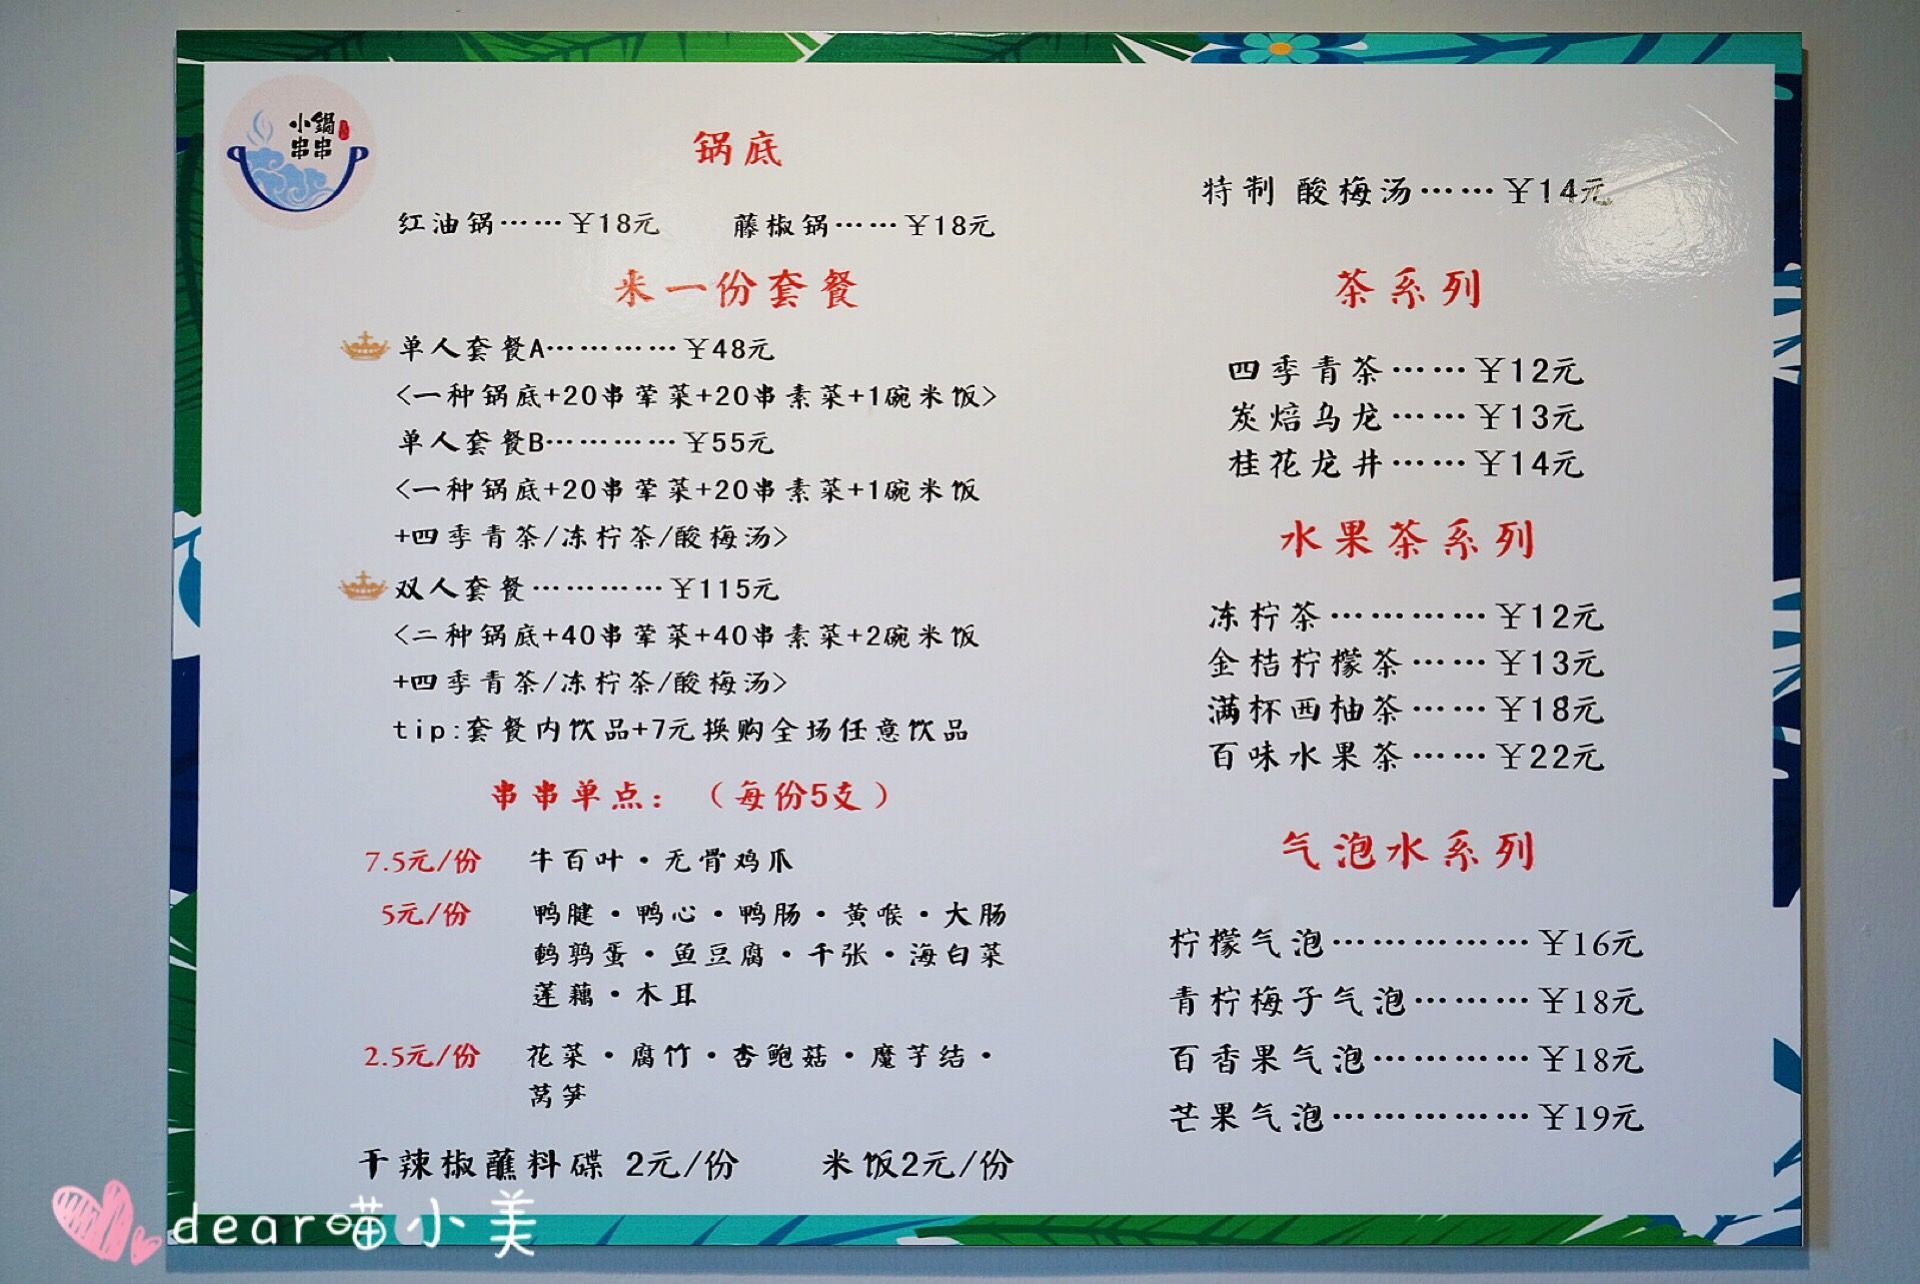 小锅
串串
锅底
红油锅……￥18元 藤椒锅……￥18元
来一份套餐
单人套餐A…………￥48元
<一种锅底+20串荤菜+20串素菜+1碗米饭>
单人套餐B…………￥55元
<一种锅底+20串荤菜+20串素菜+1碗米饭
+四季青茶/冻柠茶/酸梅汤>
双人套餐…………￥115元
<二种锅底+40串荤菜+40串素菜+2碗米饭
+四季青茶/冻柠茶/酸梅汤>
tip:套餐内饮品+7元换购全场任意饮品
串串单点：（每份5支）
7.5元/份 牛百叶·无骨鸡爪
5元/份 鸭腱·鸭心·鸭肠·黄喉·大肠
鹌鹑蛋·鱼豆腐·千张·海白菜
莲藕·木耳
2.5元/份 花菜·腐竹·杏鲍菇·魔芋结·
莴笋
干辣椒蘸料碟 2元/份 米饭2元/份
特制 酸梅汤……￥14元
茶系列
四季青茶……￥12元
炭焙乌龙……￥13元
桂花龙井……￥14元
水果茶系列
冻柠茶…………￥12元
金桔柠檬茶……￥13元
满杯西柚茶……￥18元
百味水果茶……￥22元
气泡水系列
柠檬气泡……………￥16元
青柠梅子气泡………￥18元
百香果气泡…………￥18元
芒果气泡……………￥19元
dear喵小美